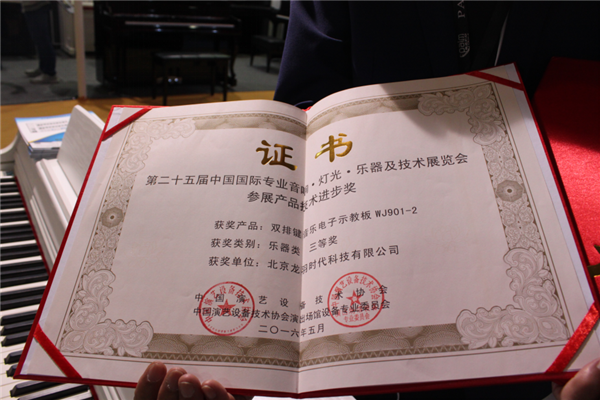 证书
第二十五届中国国际专业音响·灯光·乐器及技术展览会
参展产品技术进步奖
获奖产品：双排键音乐电子示教板 WJ901-2
获奖类别：乐器类 三等奖
获奖单位：北京龙时代科技有限公司
中国演艺设备技术协会
中国演艺设备技术协会演出场馆设备专业委员会
二〇一六年五月